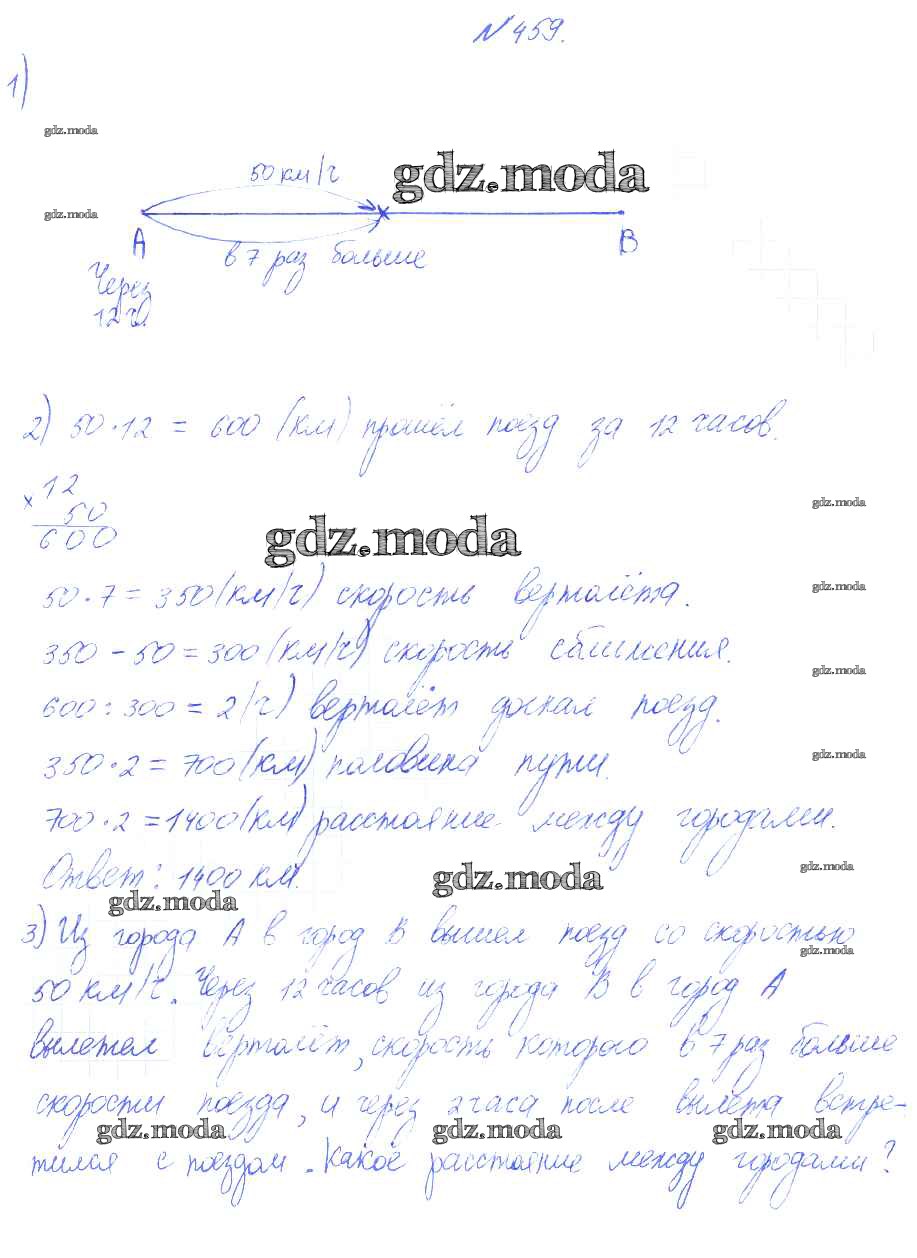 № 459.
1)
gdz.moda
50 км/ч
gdz.moda
gdz.moda
А
В
в 7 раз больше
Через
12 ч.
2) 50 · 12 = 600 (км) прошёл поезд за 12 часов.
gdz.moda
× 12
50
600
gdz.moda
50 · 7 = 350 (км/ч) скорость вертолёта.
gdz.moda
350 - 50 = 300 (км/ч) скорость сближения.
gdz.moda
600 : 300 = 2 (ч) вертолёт догнал поезд.
gdz.moda
350 · 2 = 700 (км) половина пути.
700 · 2 = 1400 (км) расстояние между городами.
gdz.moda
Ответ: 1400 км.
gdz.moda
gdz.moda
3) Из города А в город В вышел поезд со скоростью
gdz.moda
50 км/ч. Через 12 часов из города В в город А
вылетел вертолёт, скорость которого в 7 раз больше
скорости поезда, и через 2 часа после вылета встре-
gdz.moda
gdz.moda
gdz.moda
тился с поездом. Какое расстояние между городами?